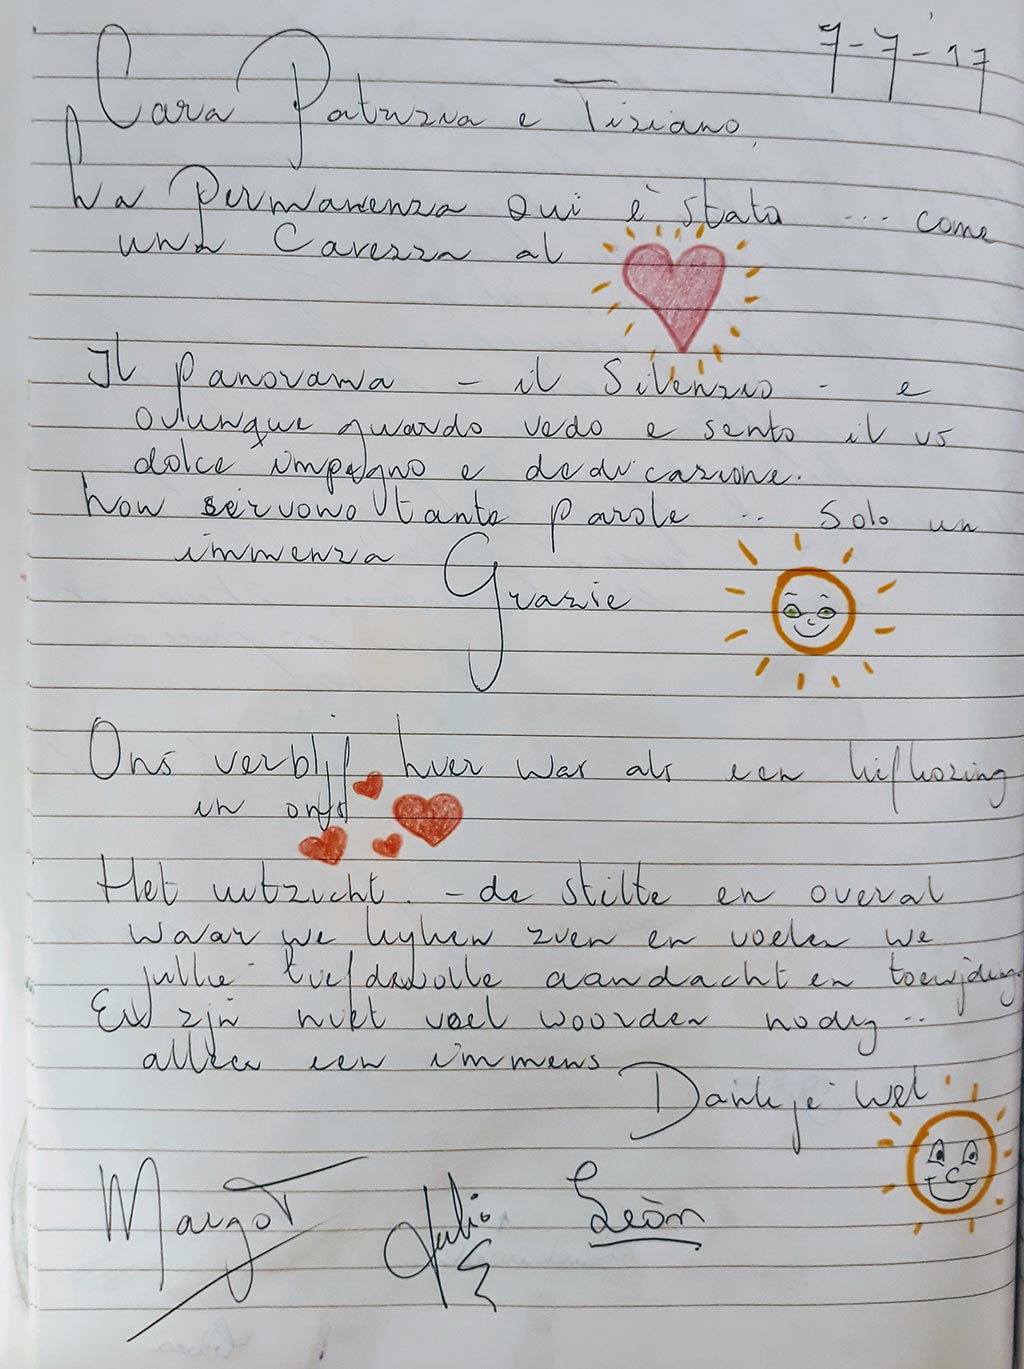 7-7-17
Cara Patrizia e Tiziano,
La Permanenza qui è stata ... come
una Carezza al
Il panorama - il Silenzio - e
ovunque guardo vedo e sento il vs
dolce impegno e dedicazione.
Non servono tante parole .. Solo un
immenza
Grazie
Ons verblijf hier was als een liefkozing
in ons
Het uitzicht. - de stilte en overal
waar we kijken zien en voelen we
jullie liefdevolle aandacht en toewijding
Er zijn niet veel woorden nodig ..
alleen een immens
Dank je wel
Margot Julio León